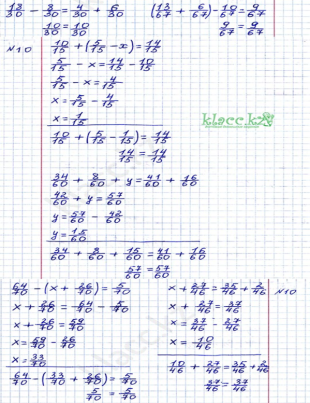 18/30 - 8/30 = 4/30 + 6/30
10/30 = 10/30
(13/67 + 6/67) - 10/67 = 9/67
9/67 = 9/67
№10
10/15 + (5/15 - x) = 14/15
5/15 - x = 14/15 - 10/15
5/15 - x = 4/15
x = 5/15 - 4/15
x = 1/15
10/15 + (5/15 - 1/15) = 14/15
14/15 = 14/15
klacc.kz
34/60 + 8/60 + y = 41/60 + 16/60
42/60 + y = 57/60
y = 57/60 - 42/60
y = 15/60
34/60 + 8/60 + 15/60 = 41/60 + 16/60
57/60 = 57/60
64/70 - (x + 26/70) = 5/70
x + 26/70 = 64/70 - 5/70
x + 26/70 = 59/70
x = 59/70 - 26/70
x = 33/70
64/70 - (33/70 + 26/70) = 5/70
5/70 = 5/70
№10
x + 27/46 = 35/46 + 2/46
x + 27/46 = 37/46
x = 37/46 - 27/46
x = 10/46
10/46 + 27/46 = 35/46 + 2/46
37/46 = 37/46